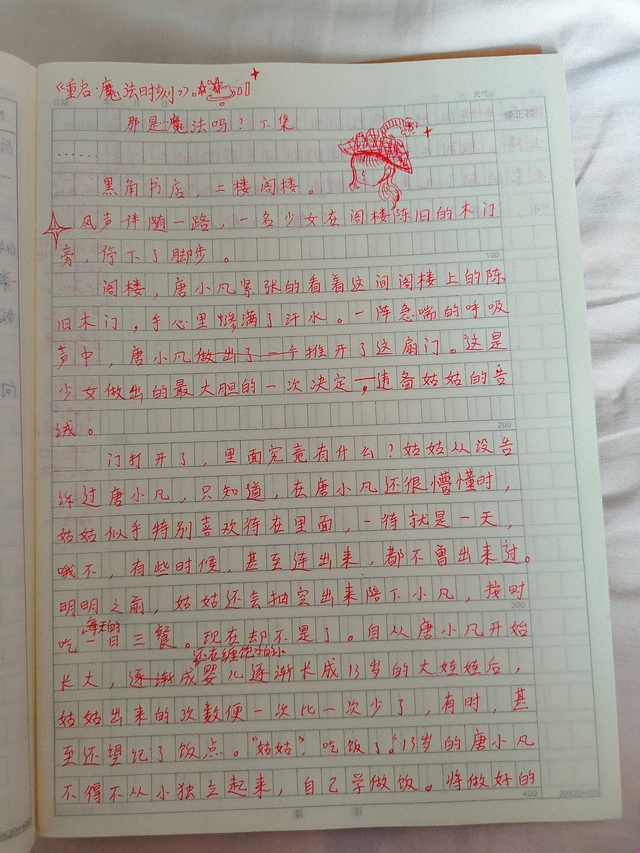 《重启·魔法时刻》。
天气
那是魔法吗？下集
修正栏
……
黑角书店，二楼阁楼。
风声伴随一路，一名少女在阁楼陈旧的木门
旁，停下了脚步。
100
阁楼，唐小凡紧张的看着这间阁楼上的陈
旧木门，手心里渗满了汗水。一阵急喘的呼吸
声中，唐小凡做出了一个推开了这扇门。这是
少女做出的最大胆的一次决定，违备姑姑的告
诫。
200
门打开了，里面究竟有什么？姑姑从没告
诉过唐小凡，只知道，在唐小凡还很懵懂时，
姑姑似乎特别喜欢待在里面，一待就是一天，
哦不，有些时候，甚至连出来，都不曾出来过。
明明之前，姑姑还会抽空出来陪下小凡，按时
300
吃每天的一日三餐。现在却不是了。自从唐小凡开始
长大，逐渐成婴儿逐渐长成13岁的大娃娃后，
姑姑出来的次数便一次比一次少了，有时，甚
至还望记了饭点。“姑姑”，吃饭了」13岁的唐小凡
不得不从小独立起来，自己学做饭。将做好的
400
20X20=400
第 页